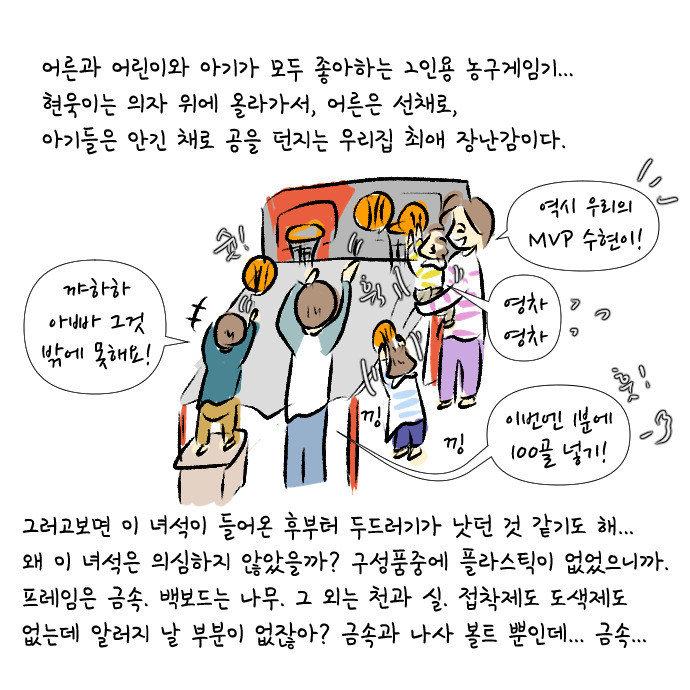 어른과 어린이와 아기가 모두 좋아하는 2인용 농구게임기...
현묵이는 의자 위에 올라가서, 어른은 선채로,
아기들은 안긴 채로 공을 던지는 우리집 최애 장난감이다.
역시 우리의
MVP 수현이!
슛!
꺄하하
아빠 그것
밖에 못해요!
휙
영차
영차
훗!
낑
낑
이번엔 1분에
100골 넣기!
그러고보면 이 녀석이 들어온 후부터 두드러기가 낫던 것 같기도 해...
왜 이 녀석은 의심하지 않았을까? 구성품중에 플라스틱이 없었으니까.
프레임은 금속. 백보드는 나무. 그 외는 천과 실. 접착제도 도색제도
없는데 알러지 날 부분이 없잖아? 금속과 나사 볼트 뿐인데... 금속...